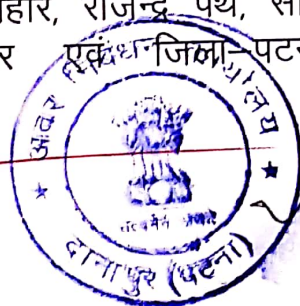 हार, राजेन्द्र पथ, सा
र एवं जिला-पटन
अवर निबंधन कार्यालय
सत्यमेव जयते
दानापुर (पटना)